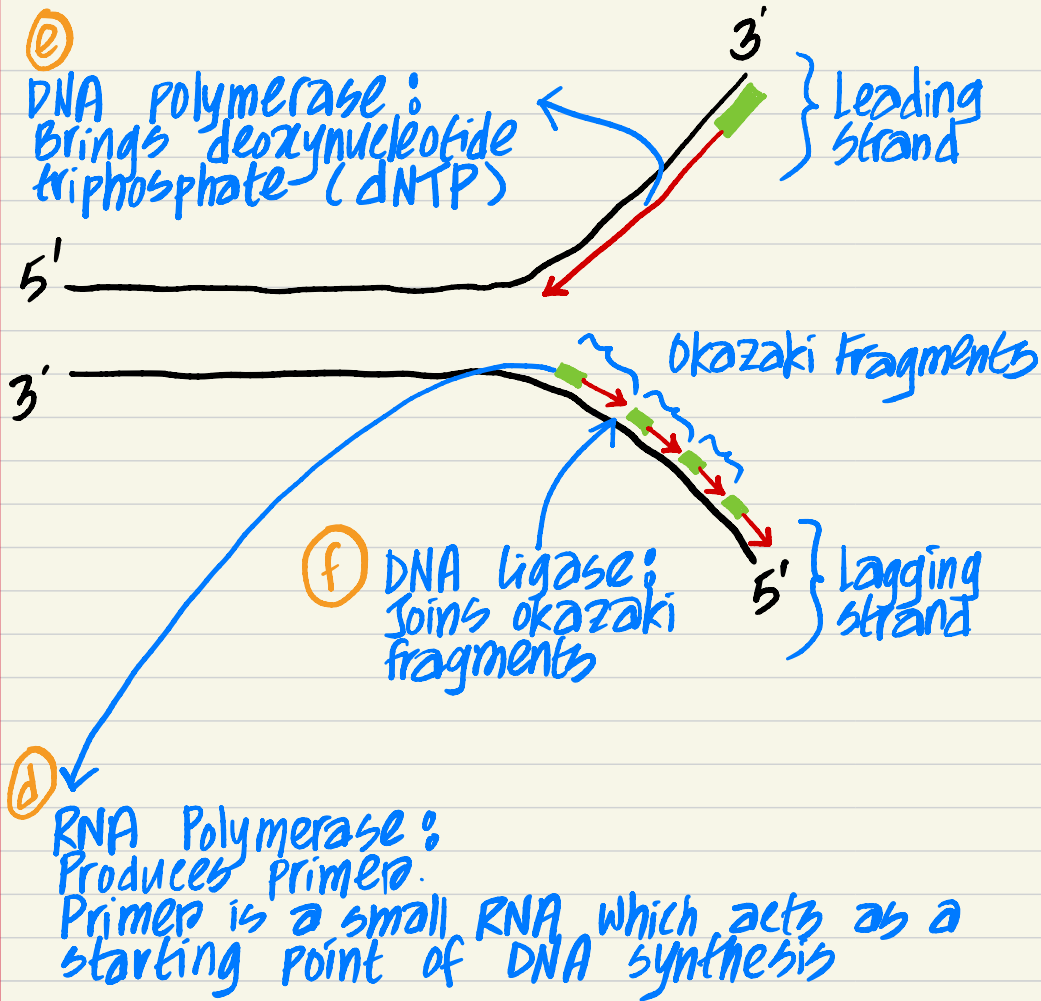 e
DNA polymerase:
Brings deoxynucleotide
triphosphate (dNTP)
3'
Leading
strand
5'
3'
Okazaki Fragments
f
DNA Ligase:
Joins okazaki
fragments
5'
Lagging
strand
d
RNA Polymerase:
Produces primer.
Primer is a small RNA which acts as a
starting point of DNA synthesis